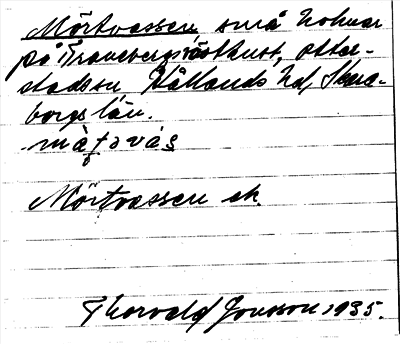 Mörtvassen, små holmar
på Traneberg:s östkust, Otter-
stads sn Kållands hd, Skara-
borgs län.
Mörtvassen ek.
Thorvald Jonsson 1935.